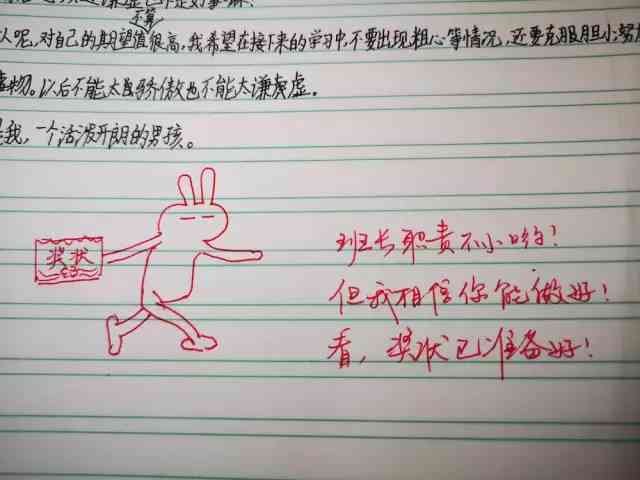 不算
人呢,对自己的期望值很高,我希望在接下来的学习中,不要出现粗心等情况,还要克服胆小努力
事物。以后不能太过骄傲也不能太谦虚。
是我,一个活泼开朗的男孩。
奖状
班长职责不小哟!
但我相信你能做好!
看,奖状已准备好!